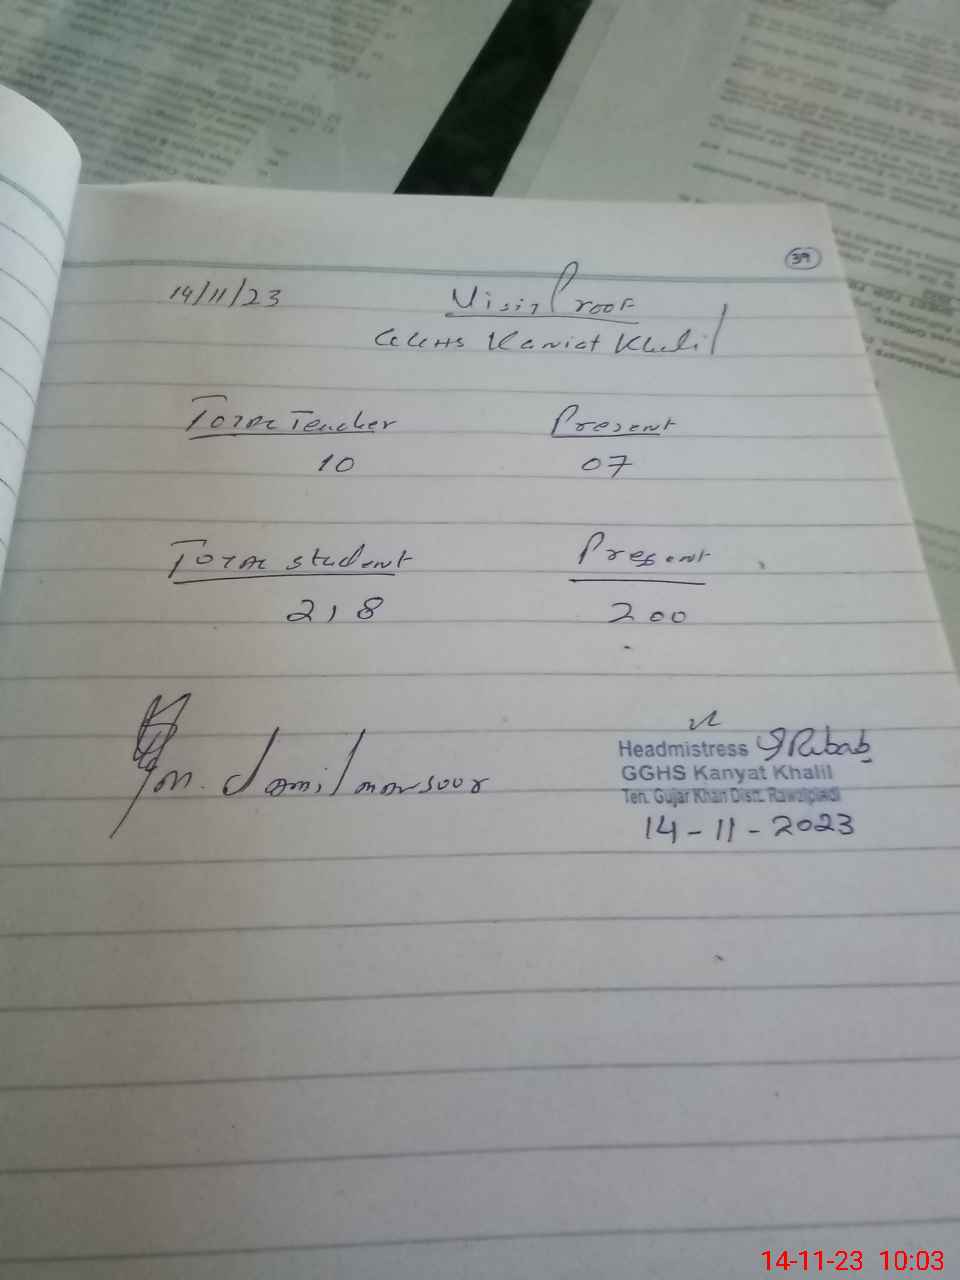 39
14/11/23 Visit Proof
GGHS Kaniat Khalil
Total Teacher Present
10 07
Total student Present
218 200
M. Jamil mansoor
Headmistress Rubab
GGHS Kanyat Khalil
Teh. Gujar Khan Distt. Rawalpindi
14-11-2023
14-11-23 10:03